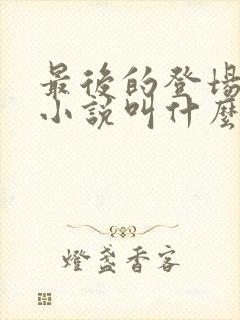 最後的登場
小說叫什麼
燈盞香客